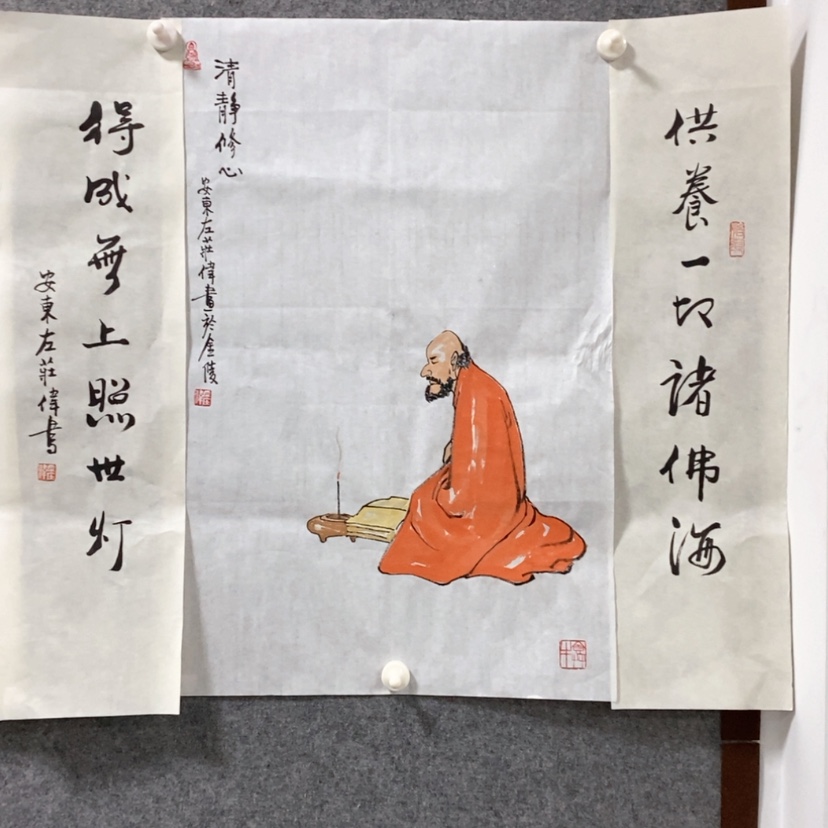 供養一切諸佛海
清靜修心
安東左莊偉畫於金陵
得成無上照世灯
安東左莊偉書